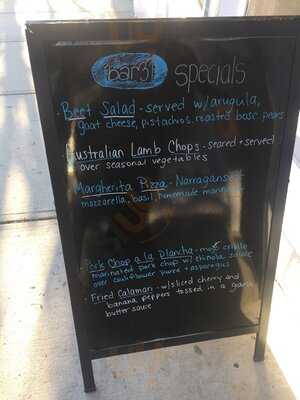 bar31 specials
Beet Salad - served w/arugula,
goat cheese, pistachios, roasted bosc pears
Australian Lamb Chops - seared + served
over seasonal vegetables
Margherita Pizza - Narragansett
mozzarella, basil, homemade marinara
Pork Chop a la plancha - mojo criollo
marinated pork chop w/ chinola salsa
over cauliflower puree + asparagus
Fried Calamari - w/sliced cherry and
banana peppers tossed in a garlic
butter sauce